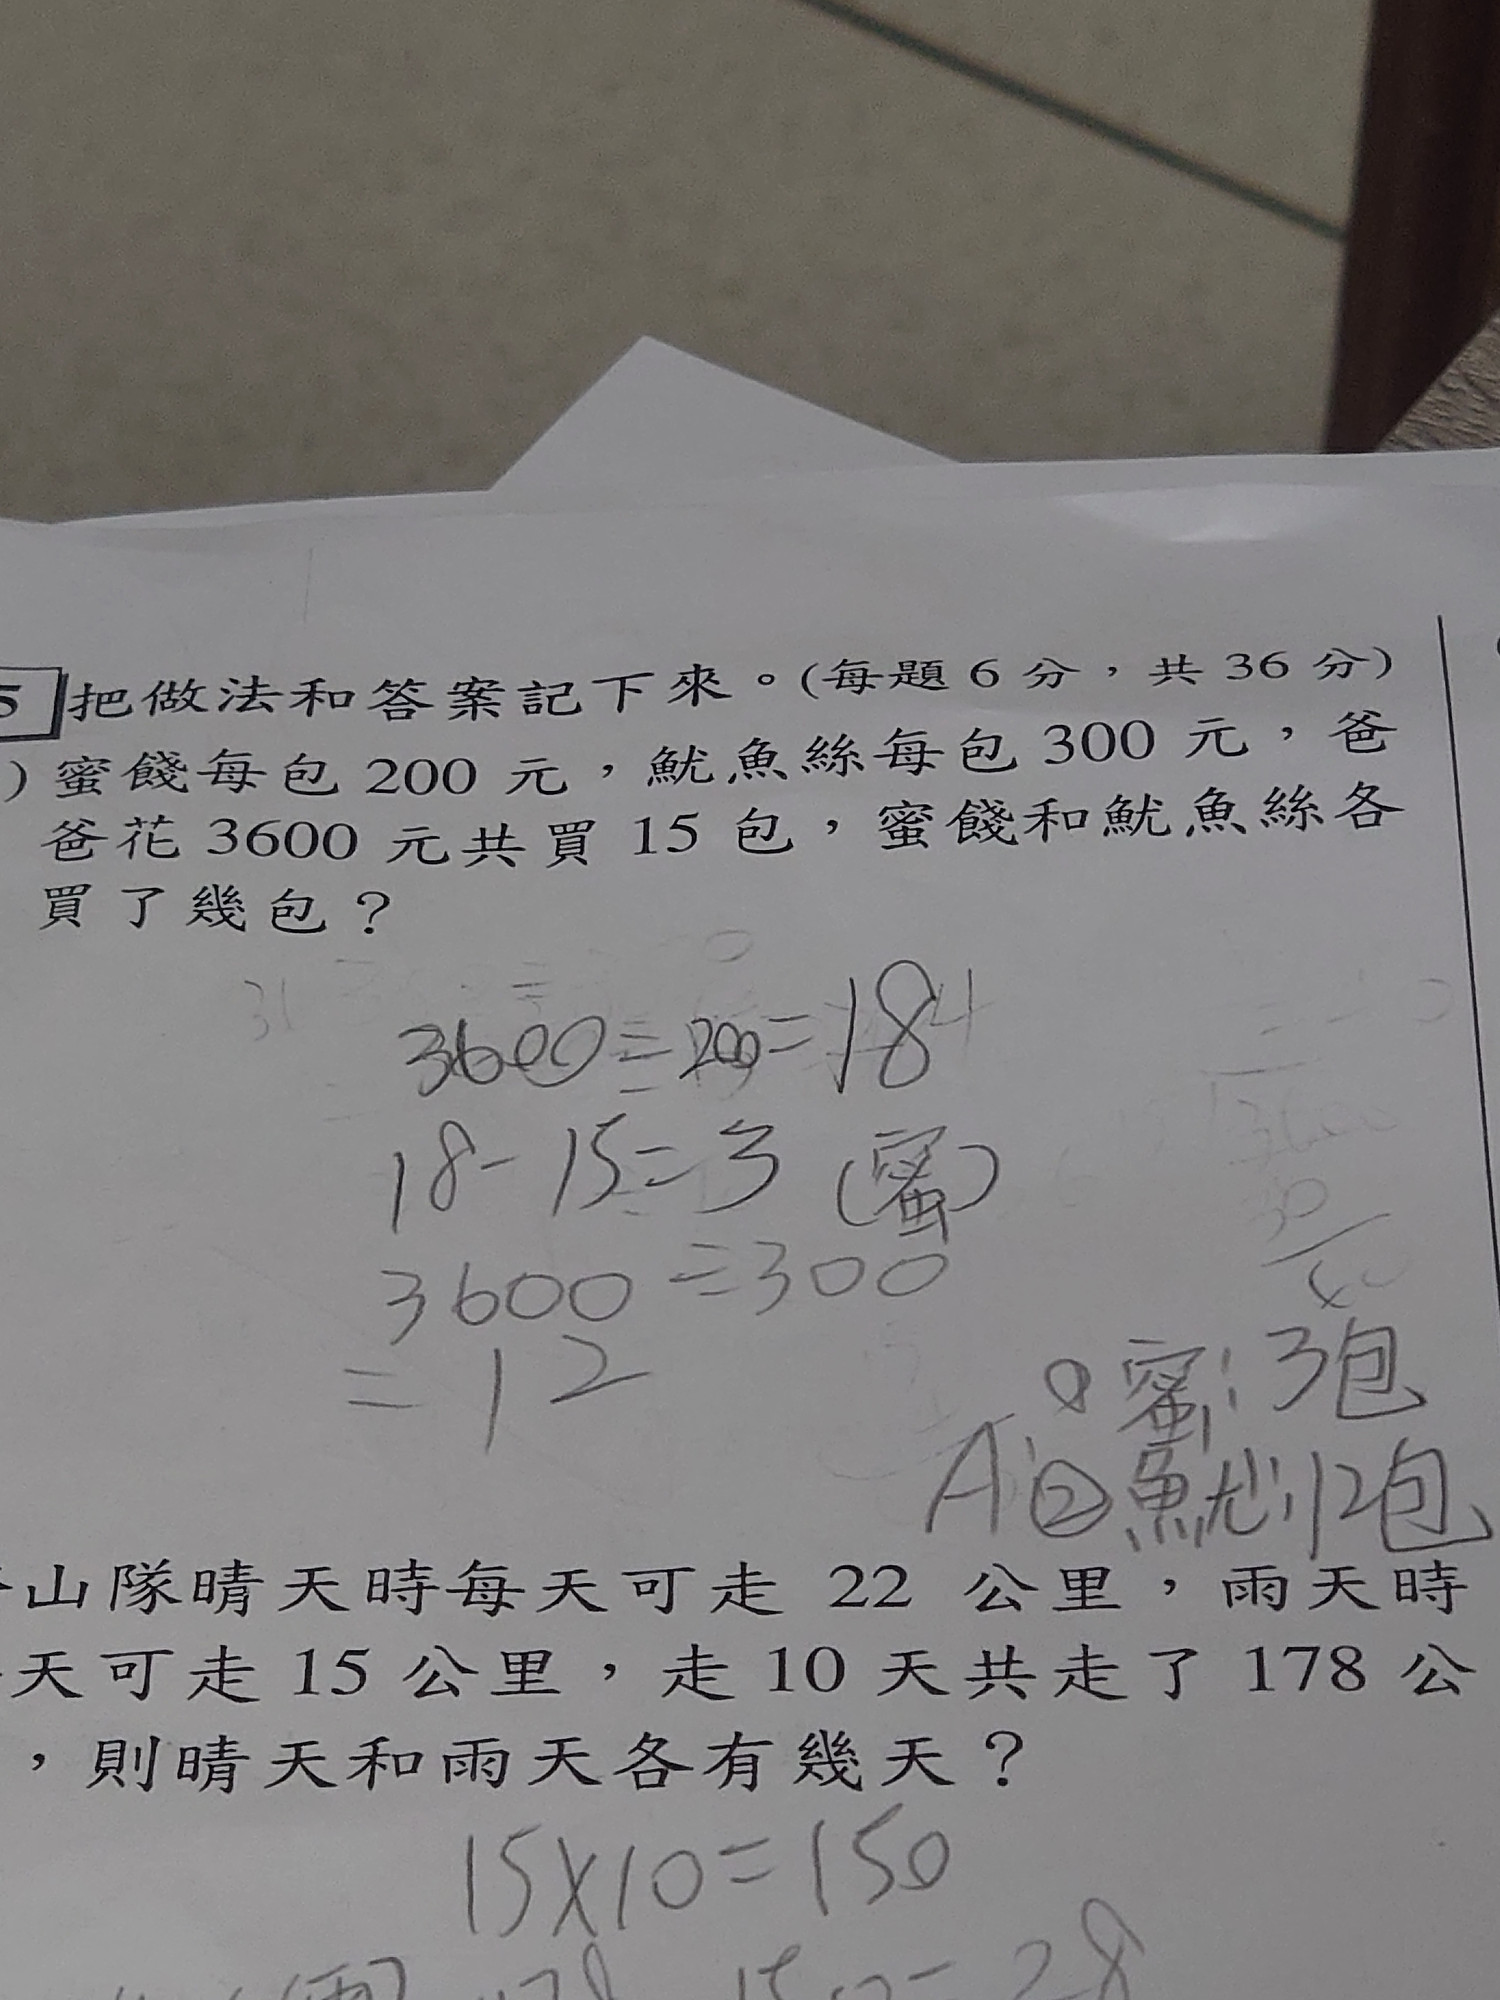 5 把做法和答案記下來。(每題6分，共36分)
)蜜餞每包200元，魷魚絲每包300元，爸
爸花3600元共買15包，蜜餞和魷魚絲各
買了幾包？
3600÷200=18
18-15=3 (蜜)
3600÷300
=12
蜜:3包
A:②魷:12包
山隊晴天時每天可走22公里，雨天時
天可走15公里，走10天共走了178公
，則晴天和雨天各有幾天？
15×10=150
(雨)178-150=28